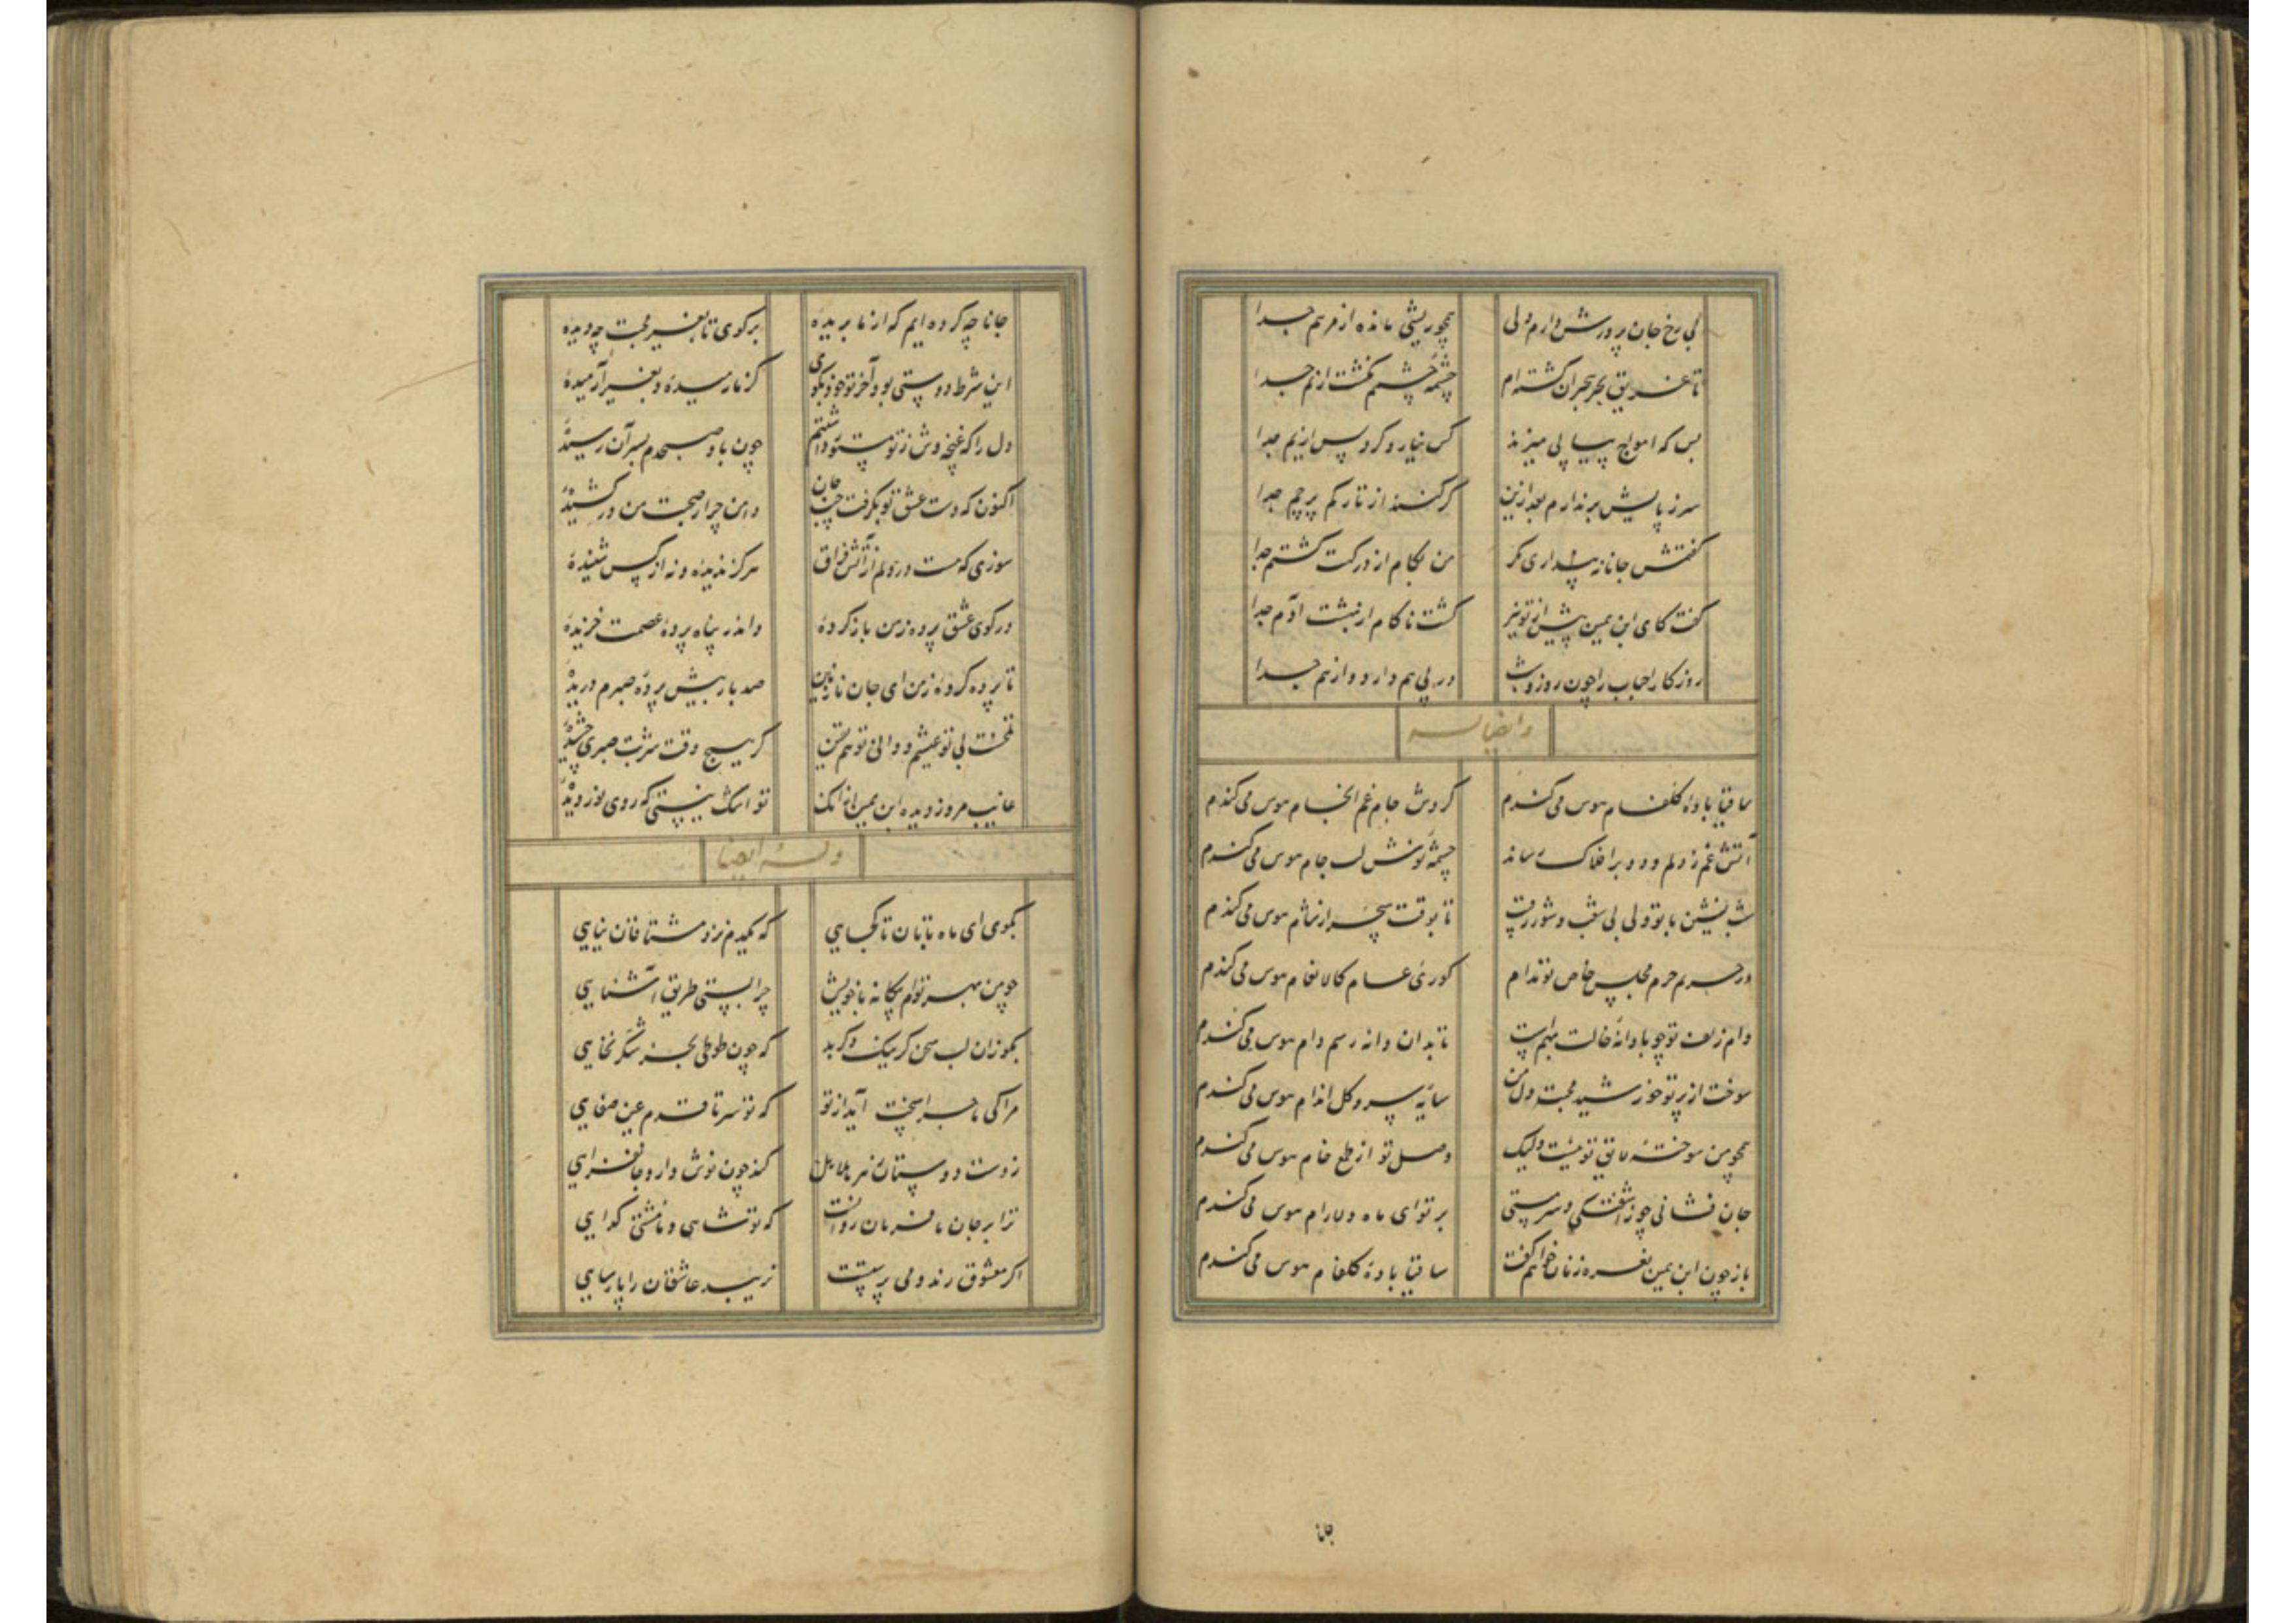 بی رخ جان پرورش دارم دلی همچو ریشی مانده از مرهم جدا
تا غریق بحر هجران گشته‌ام چشمهٔ چشمم نگشت از نم جدا
بس که امواج پیاپی میزند کس نیارد کرد پس از یم جدا
سر ز پایش برندارم بعد ازین گر کنند از تارکم پرچم جدا
گفتمش جانا نپنداری مگر من بکام از درگهت گشتم جدا
گفت کای ابن یمین پیش از تو نیز گشت ناکام از بهشت آدم جدا
روزگار احباب را چون روز و شب در پی هم دارد و از هم جدا
و ایضا له
ساقیا بادهٔ گلفام هوس می‌کندم گردش جام غم انجام هوس می‌کندم
آتش غم ز دلم دود بر افلاک رساند چشمهٔ نوش لب جام هوس می‌کندم
شب نشین با تو ولی بی شغب و شور رقیب تا بوقت سحر از شام هوس می‌کندم
در حریم حرم مجلس خاص تو ندام کوری عام کالانعام هوس می‌کندم
دام زلف تو چو با دانهٔ خالت بهمست تا بدان دانه رسم دام هوس می‌کندم
سوخت از پرتو خورشید محبت دل من سایهٔ سرو گل اندام هوس می‌کندم
همچو من سوختهٔ لایق تو نیست ولیک وصل تو از طمع خام هوس می‌کندم
جان فشانی چو ز آشفتگی و سرمستی بر تو ای ماه دلارام هوس می‌کندم
باز چون ابن یمین نعره زنان خواهم گفت ساقیا بادهٔ گلفام هوس می‌کندم
جانا
جانا چه کرده‌ایم که از ما بریدهٔ برگوی تا بغیر محبت چه دیدهٔ
این شرط دوستی بود آخر تو خود بگوی کز ما رمیدهٔ و بغیر آرمیدهٔ
دل را که غنچه وش ز تو مستور داشتم چون باد صبحدم بسر آن رسیدهٔ
اکنون که دست عشق تو بگرفت جیب جان دامن چرا ز صحبت من درکشیدهٔ
سوزی که هست در دلم از آتش فراق هرگز ندیدهٔ و نه از کس شنیدهٔ
در کوی عشق پرده ز من باز کردهٔ واندر پناه پردهٔ عصمت خزیدهٔ
تا پرده کردهٔ ز من ای جان نازنین صد بار بیش پردهٔ صبرم دریدهٔ
تلخست بی تو عیشم و دانی تو هم یقین گر هیچ وقت شربت صبری چشیدهٔ
غایب مرو ز دیده ابن یمین از آنک تو اشک نیستی که روی بر دو دیدهٔ
وله ایضا
بگوی ای ماه تابان تا کجایی که یکدم نزد مشتاقان نیایی
چو من بهر توام بیگانه با خویش چرا بستی طریق آشنایی
بگو زان لب سخن گر نیک و گر بد که چون طوطی بجز شکر نخایی
مرا کی ماجرا سخت آید از تو که تو سر تا قدم عین صفایی
ز دست دوستان زهر هلاهل کند چون نوش دارو جانفزایی
ترا بر جان ما فرمان روانست که تو شاهی و ما مشتی گدایی
اگر معشوق رند و می پرستست نزیبد عاشقان را پارسایی